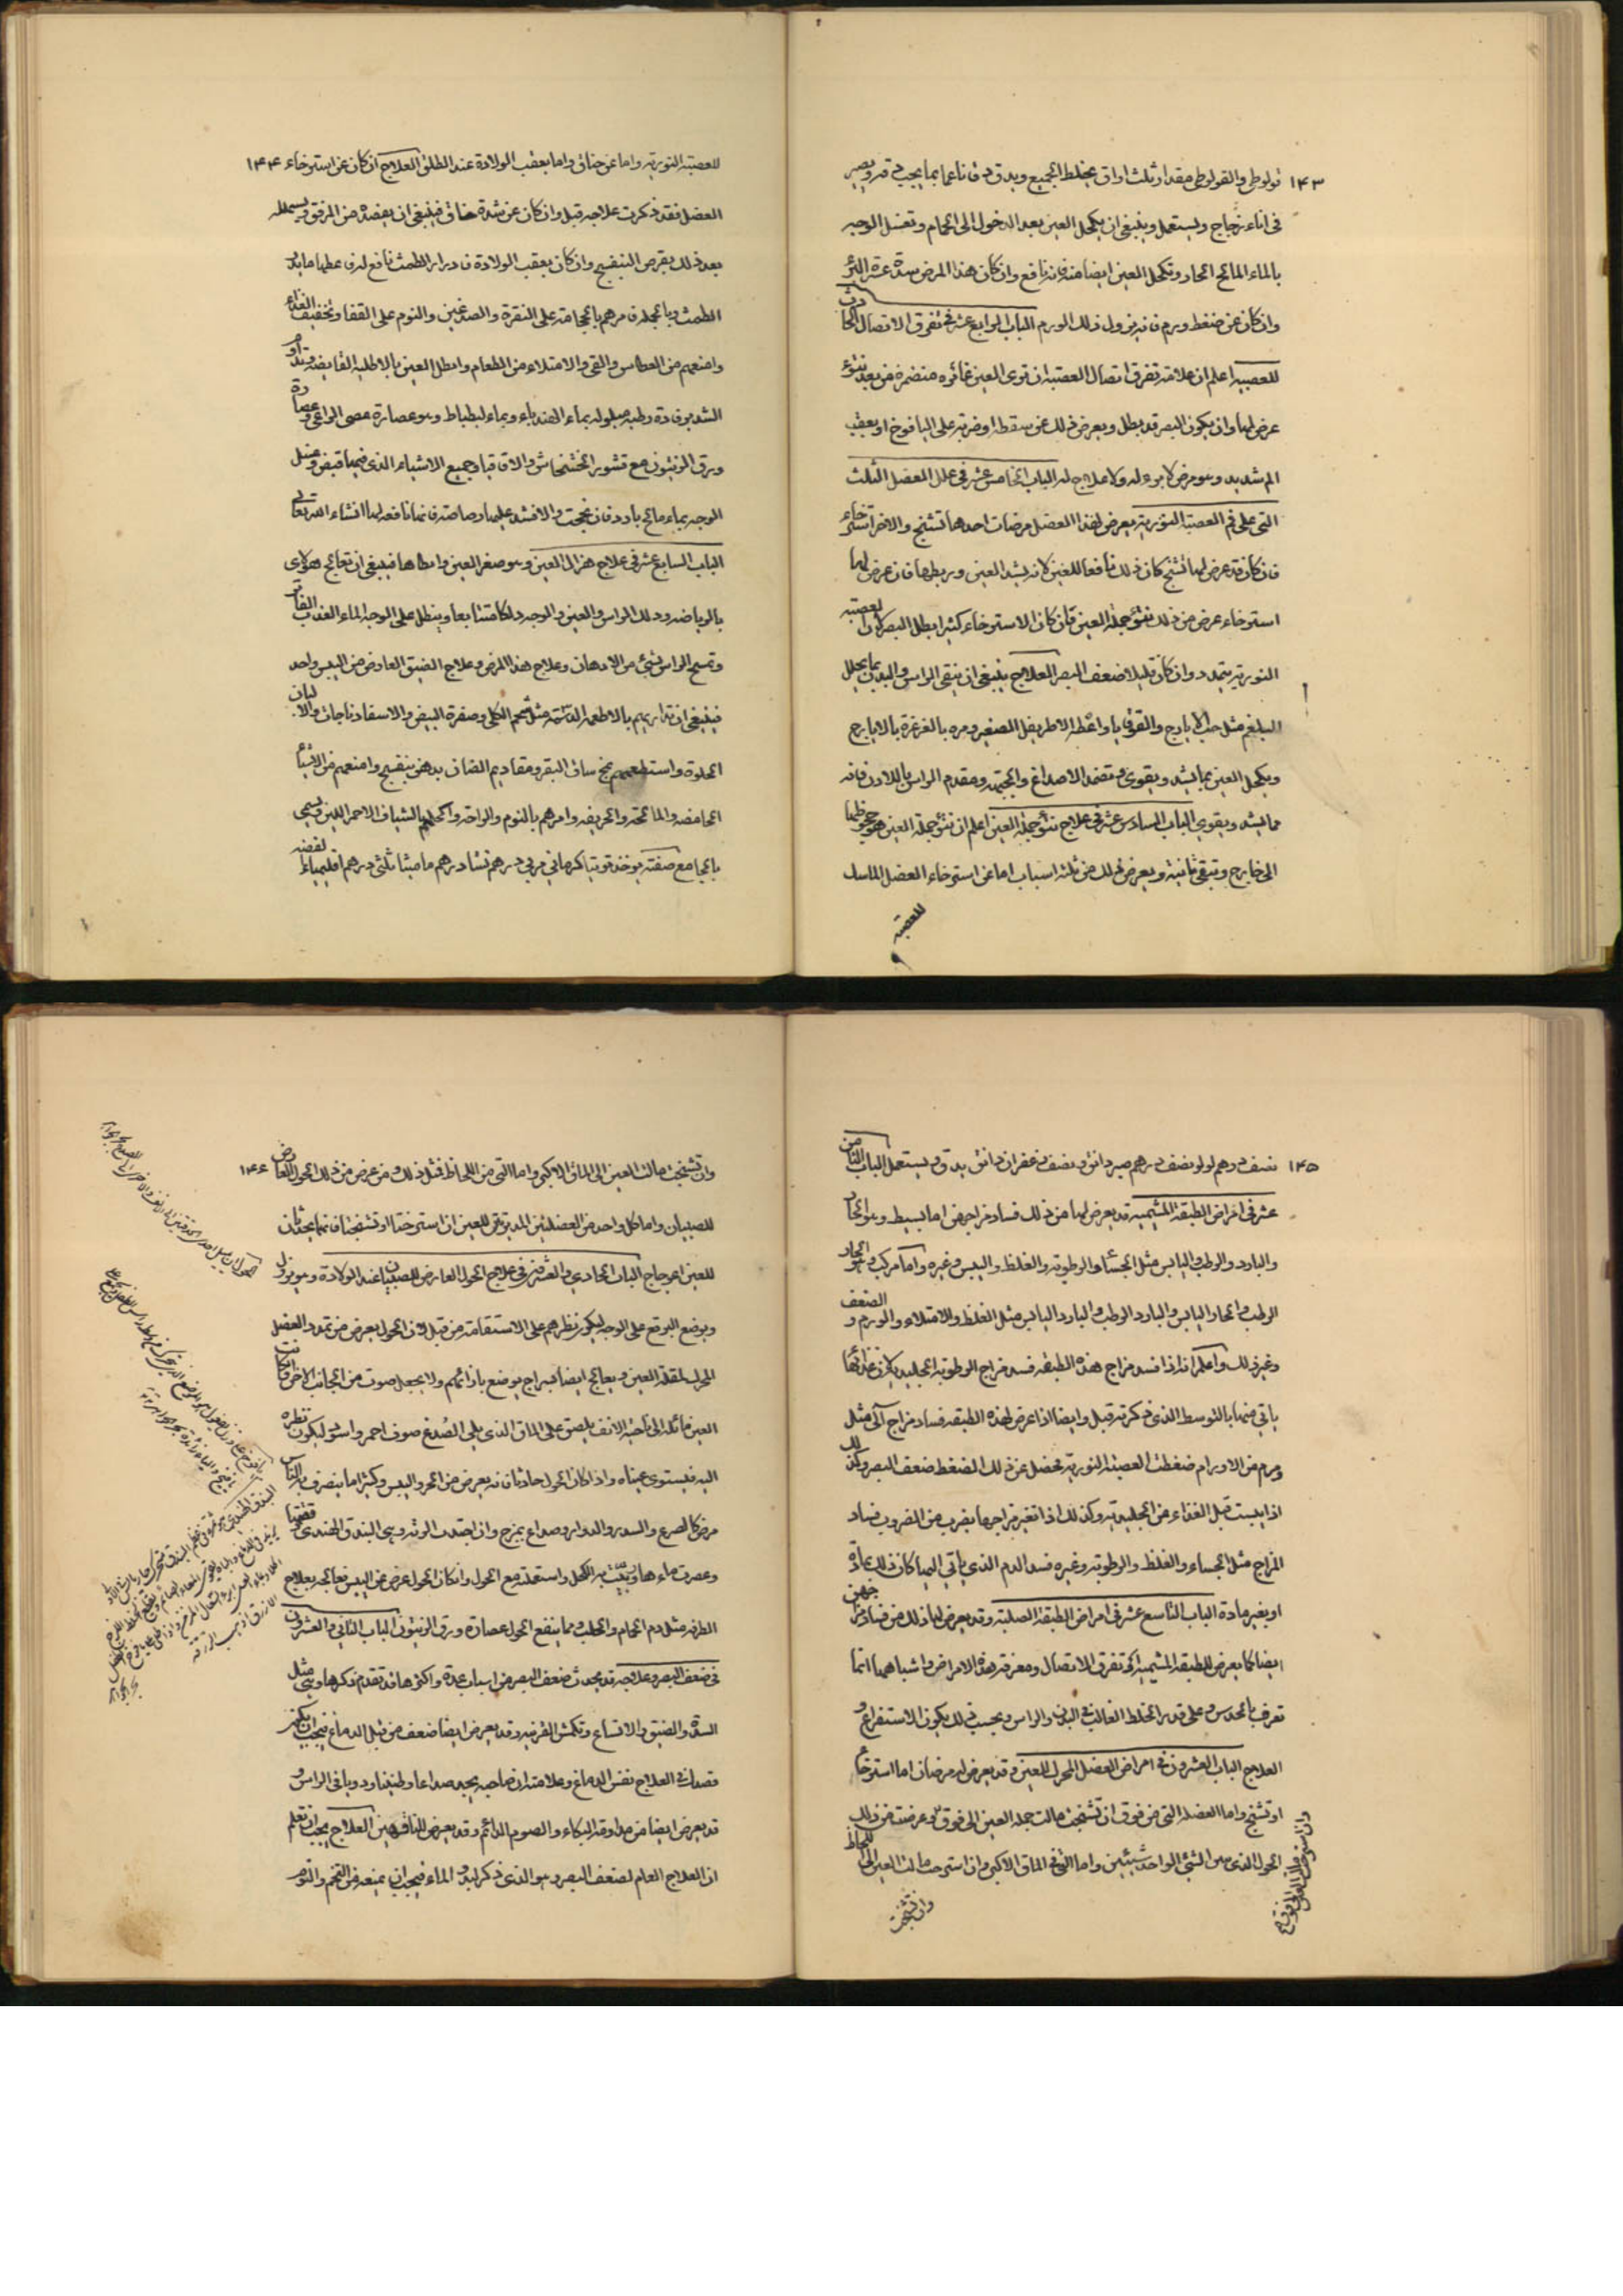 ١٤٣ قولوطي والقولوطي مقدار ثلث اواق يخلط الجميع ويدق دقا ناعما بما يجب دقه ويصير
في اناء زجاج ويستعمل وينبغي ان يكحل العين بعد الدخول الى الحمام وتغسل الوجه
بالماء المالح الحار وتكحل العين ايضا منه فانه نافع وان كان هذا المرض سدة عسرة البرؤ
وان كان عن ضغط ورم فانه يزول بزوال ذلك الورم الباب الرابع عشر في تفرق الاتصال الحادث
للعصبه اعلم ان علامة تفرق اتصال العصبة ان ترى العين غائره منضمرة من بعد نتوء
عرض لها وان يكون البصر قد بطل ويعرض ذلك عن سقطة او ضربة على اليافوخ او بعقب
الم شديد وهو مرض لا برء له ولا علاج له الباب الخامس عشر في علل العضل الثلث
التي على فم العصبة النورية يعرض لهذا العضل مرضان احدهما تشنج والاخر استرخاء
فان كان قد عرض لها تشنج كان ذلك نافعا للعين لانه يشد العين ويربطها فان عرض لها
استرخاء عرض من ذلك نتؤ جملة العين فان كان الاسترخاء كثيرا بطل البصر لان العصبة
النورية يتمدد وان كان قليلا ضعف البصر العلاج ينبغي ان ينقى الراس والبدن بما يحلل
البلغم مثل حب الايارج والقوقايا واعطه الاطريفل الصغير ومره بالغرغرة بالايارج
ويكحل العين بما يشد ويقوى وتضمد الاصداغ والجبهة ومقدم الراس باللادن فانه
مما يشد ويقوي الباب السادس عشر في علاج نتؤ جملة العين اعلم ان نتؤ جملة العين هو جحوظها
الى خارج وتبقى ثابتة ويعرض ذلك من ثلثه اسباب اما عن استرخاء العضل الماسك
للعصبه
للعصبة النورية واما عن خناق واما بعقب الولادة عند الطلق العلاج ان كان عن استرخاء ١٤٤
العضل فقد ذكرت علاجه قبل وان كان عن شدة خناق فينبغي ان يفصده من المرفق ويسهله
بعد ذلك بقرص البنفسج وان كان بعقب الولادة فادرار الطمث نافع لهن فاعطها ما يدر
الطمث وبالجملة فامرهم بالحجامة على النقرة والصدغين والنوم على القفا وتخفيف الغذاء
وامنعهم من العطاس والقي والامتلاء من الطعام واطل العين بالاطلية القابضة وتداوم
الشد برفادة رطبه مبلوله بماء الهندباء وبماء البطباط وهو عصارة عصى الراعي وعصارة
ورق الزيتون مع قشور الخشخاش والاقاقيا وجميع الاشياء الذي فيها قبض وغسل
الوجه بماء مالح بارد فان نجحت والا فشد عليها رصاصة فانها نافعه لها انشاء الله تعالى
الباب السابع عشر في علاج هزال العين وهو صغر العين وامكاها فينبغي ان تعالج هولاى
بالرياضه ودلك الراس والعين والوجه دلكا متتابعا وينطل على الوجه الماء العذب الفاتر
وتمسح الراس بشئ من الادهان وعلاج هذا المرض وعلاج الضيق العارض من اليبس واحد
فينبغي ان تداريهم بالاطعمه الدسمه مثل شحم الكلى وصفرة البيض والاسفادناجات والالبان
الحلوة واستطعمهم مخ ساق البقر ومقاديم الضان بدهن بنفسج وامنعهم من الاشياء
الحامضه والمالحه والحريفه وامرهم بالنوم والراحه واكحلهم بالشياف الاحمر اللين ويسمى
بالجامع صفته يوخذ توتيا كرماني مربي درهم نشا درهم ماميثا ثلثي درهم اقليمياء الفضه
١٤٥ نصف درهم لولو نصف درهم صبر دانق ونصف زعفران دانق يدق ويستعمل الباب الثامن
عشر في امراض الطبقة المشيمية قد يعرض لها من ذلك فساد مزاجهن اما بسيط وهو الحار
والبارد والرطب واليابس مثل الجساء والرطوبة والغلظ واليبس وغيره واما مركب وهو الحار
الرطب والحار اليابس والبارد الرطب والبارد اليابس مثل الغلظ والامتلاء والورم والضعف
وغير ذلك واعلم انه اذا فسد مزاج هذه الطبقه فسد مزاج الرطوبة الجليدية لان غذائها
ياتي منها بالتوسط الذي ذكرته قبل وايضا اذا عرض لهذه الطبقه فساد مزاج آلي مثل
ورم من الاورام ضغطت العصبة النورية فحصل عن ذلك الضغط ضعف البصر وكذلك
اذا يبست قبل الغذاء من الجليدية وكذلك اذا تغير مزاجها بضرب من الضروب فساد
المزاج مثل الجساء والغلظ والرطوبة وغيره فسد الدم الذي ياتي اليها كان ذلك بمادة
او بغير مادة الباب التاسع عشر في امراض الطبقة الصلبة وقد يعرض لها ذلك من فساد مزاجهن
ايضا كما يعرض للطبقه المشيمية او تفرق الاتصال ومعرفة هذه الامراض واشباهها انما
تعرف بالحدس وعلى قدر الخلط الغالب في البدن والراس وبحسب ذلك يكون الاستفراغ و
العلاج الباب العشرون في امراض العضل المحرك للعين وقد يعرض له مرضان اما استرخاء
او تشنج واما العضلة التي من فوق ان تشنجت مالت جملة العين الى فوق وعرضت من ذلك
الحول الذي يرى الشئ الواحد شيئين واما التي في الماق الاكبر وان استرخت مالت العين الى اللحاظ
وان تشنجت
وان تشنجت مالت العين الى الماق الاكبر واما التي من اللحاظ فمثل ذلك ومن عرض من ذلك الحول العارض ١٤٦
للصبيان واما كل واحد من العضلتين المديرتين للعين ان استرختا او تشنجتا فانما يحدثان
للعين اعوجاج الباب الحادي والعشرين في علاج الحول العارض للصبيان عند الولادة وهو يزول
ويوضع البرقع على الوجه ليكون نظرهم على الاستقامة من قبل ان الحول يعرض من تمدد العضل
المحرك لمقلة العين ويعالج ايضا بسراج يوضع بازائهم ولا يجعل صوت من الجانب الاخر فان كانت
العين مائلة الى ناحية الانف يلصق على الماق الذي يلي الصدغ صوف احمر واسود ليكون نظره
اليه فيستوي عيناه واذا كان الحول حادثا فانه يعرض من الحر واليبس وكثيرا ما يتصرف بالناس
مرض كالصرع والسدر والدوار وصداع يمزج وان اخذت الرته وهي البندق الهندي فدققتها
وعصرت ماءها وربيت به الكحل واستعملته مع الحول وان كان الحول عرض عن اليبس فعالجه بعلاج
الطرفه مثل دم الحمام والحلب ومما ينفع الحول عصارة ورق الزيتون الباب الثاني والعشرون
في ضعف البصر وعلاجه قد يحدث ضعف البصر من اسباب عدة واكثرها قد تقدم ذكرها وهي مثل
السدة والضيق والاتساع وتكمش القرنيه وقد يعرض ايضا ضعف من قبل الدماغ فيجب ان يكون
قصدك في العلاج نفس الدماغ وعلامته ان صاحبه يجد صداعا وطنينا ودويا في الراس و
قد يعرض ايضا من مداومة البكاء والصوم الدائم وقد يعرض للناقهين العلاج يجب ان تعلم
ان العلاج العام لضعف البصر وهو الذي ذكر لبدو الماء فيجب ان يمنعه من التخم والنوم